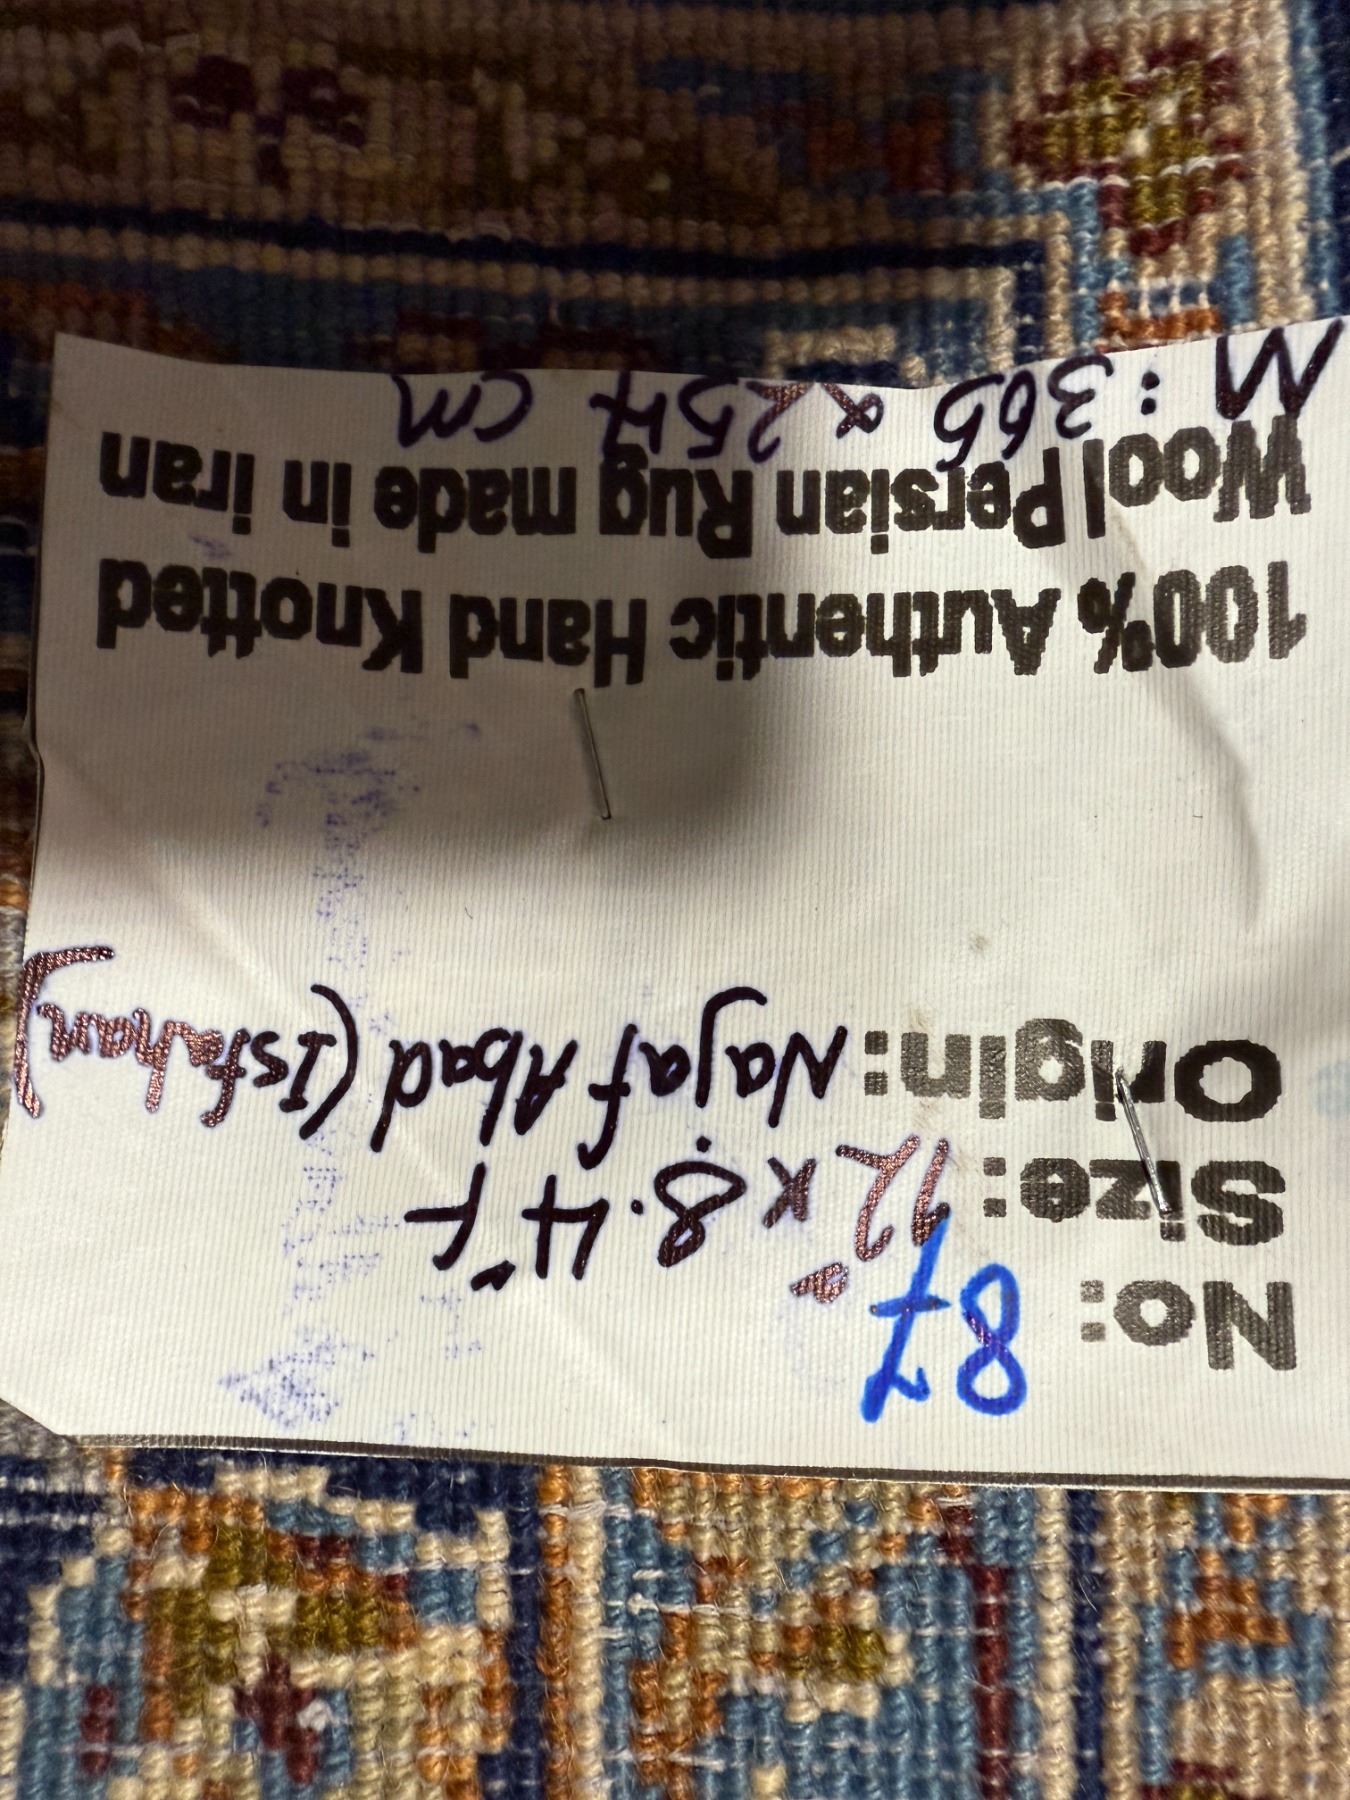 No: 87
Size: 12" x 8.4" F
Origin: Najaf Abad (Isfahan)
100% Authentic Hand Knotted
Wool Persian Rug made in iran
M: 365 x 254 cm